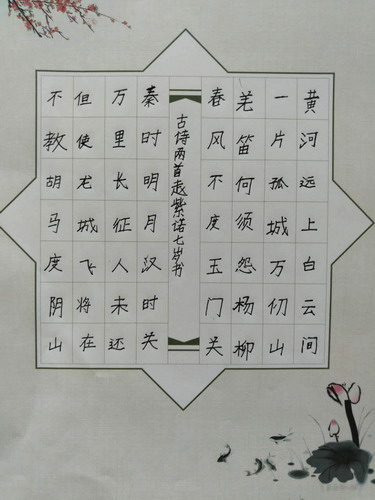 黄河远上白云间
一片孤城万仞山
羌笛何须怨杨柳
春风不度玉门关
古诗两首赵紫诺七岁书
秦时明月汉时关
万里长征人未还
但使龙城飞将在
不教胡马度阴山